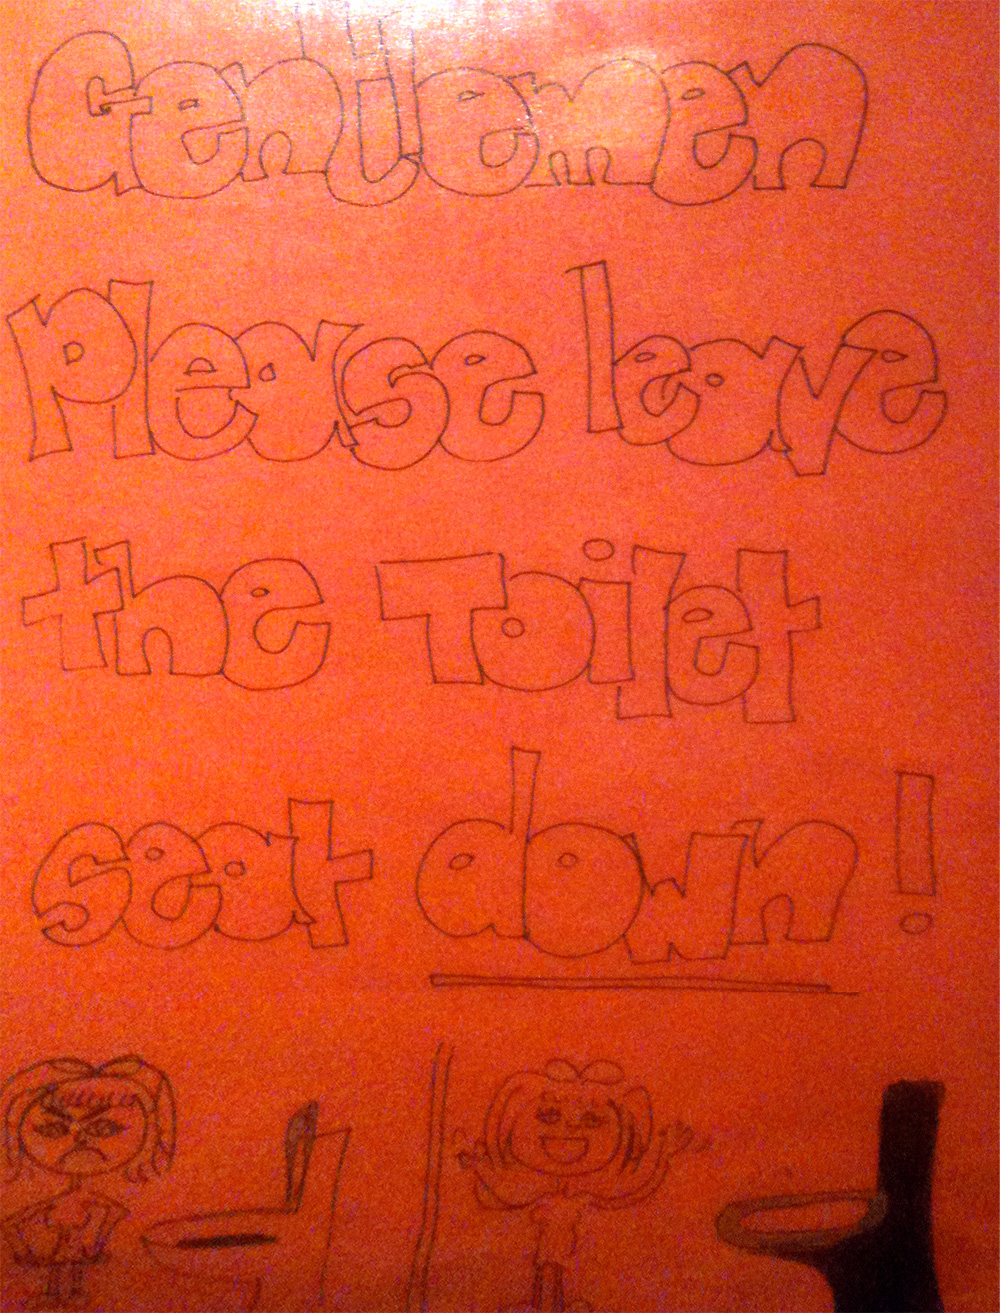 Gentlemen
Please leave
the Toilet
seat down!